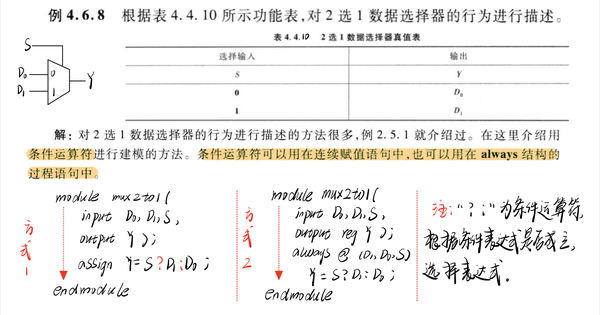 例 4.6.8 根据表 4.4.10 所示功能表,对 2 选 1 数据选择器的行为进行描述。
表 4.4.10 2 选 1 数据选择器真值表
选择输入 输出
S Y
0 D₀
1 D₁
S
D₀ 0
D₁ 1
Y
解:对 2 选 1 数据选择器的行为进行描述的方法很多,例 2.5.1 就介绍过。在这里介绍用
条件运算符进行建模的方法。条件运算符可以用在连续赋值语句中,也可以用在 always 结构的
过程语句中。
方式1
module mux2to1(
input D₀,D₁,S,
output Y);
assign Y=S?D₁:D₀;
endmodule
方式2
module mux2to1(
input D₀,D₁,S,
output reg Y);
always @ (D₁,D₀,S)
Y=S?D₁:D₀;
endmodule
注:“?:”为条件运算符,
根据条件表达式是否成立,
选择表达式.